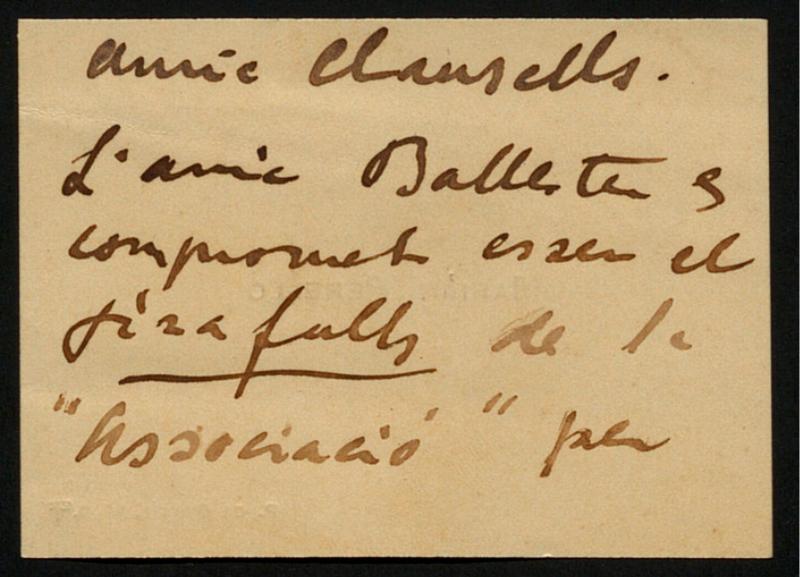 amic Clausells.
L'amic Ballester es
compromet esser el
girafulls de la
"Associació" per